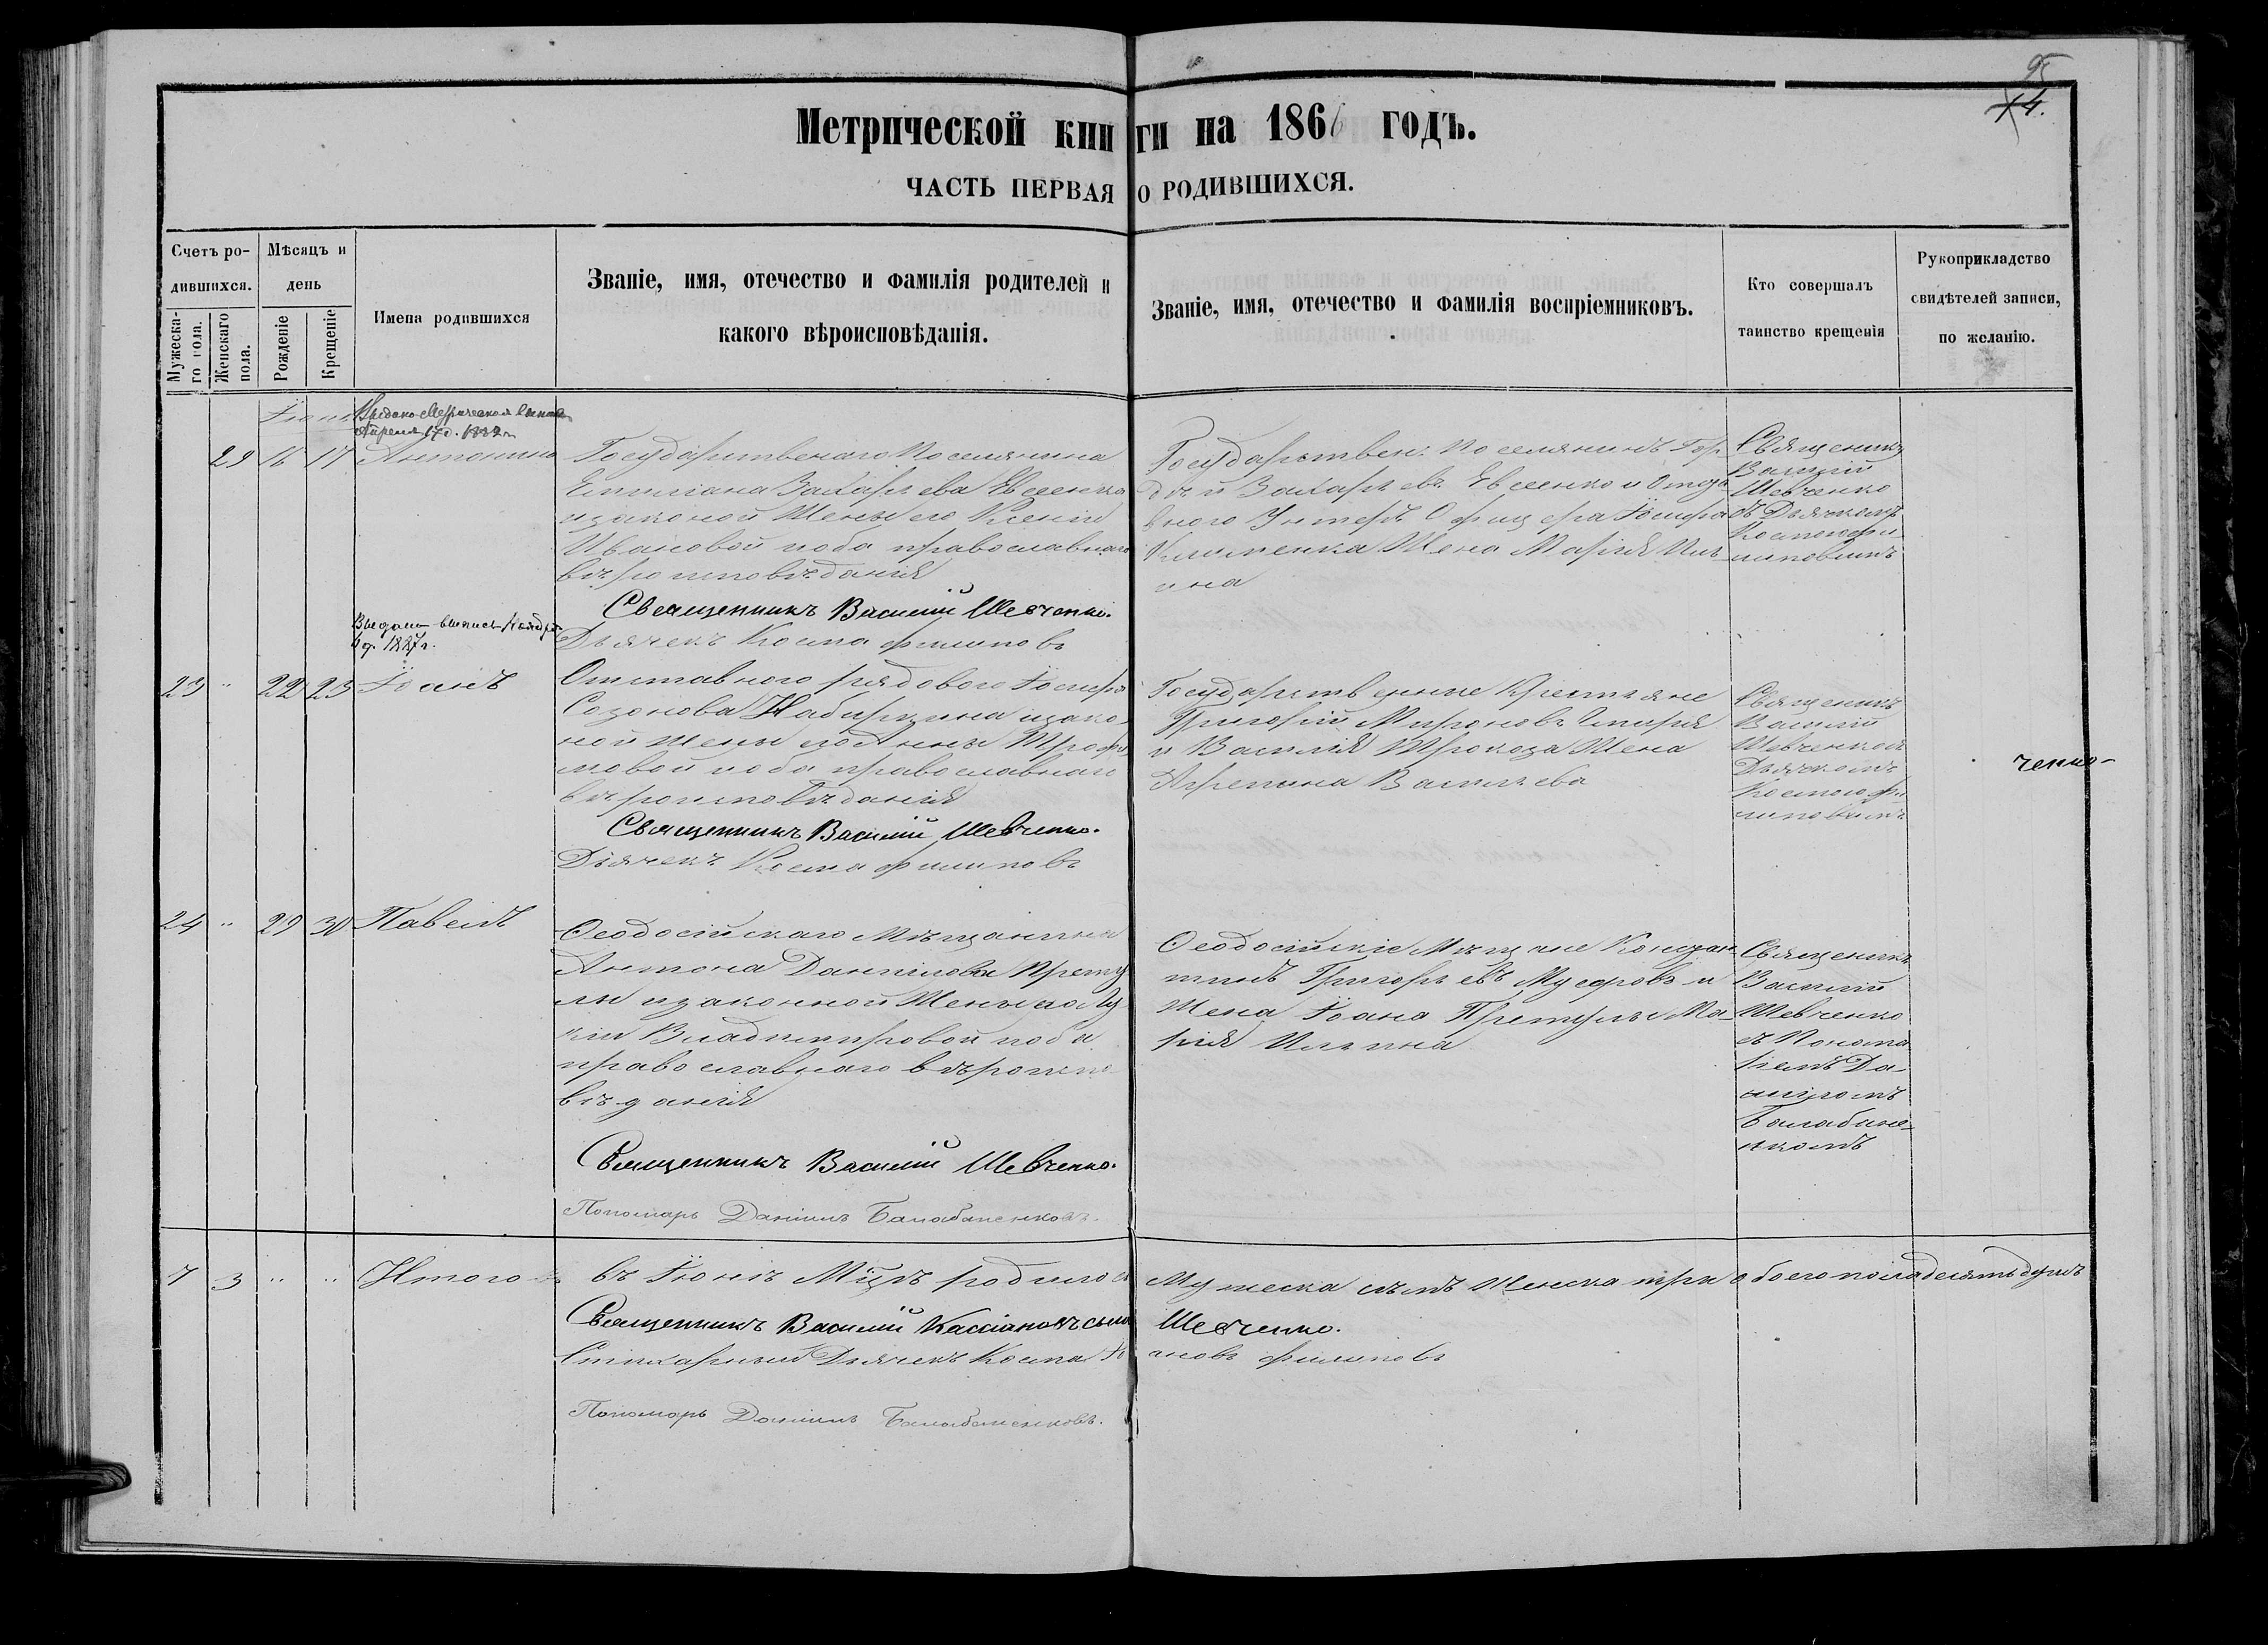 95
14.
Метрической книги на 1866 годъ.
ЧАСТЬ ПЕРВАЯ О РОДИВШИХСЯ.
Счетъ родившихся.
Мужескаго пола.
Женскаго пола.
Мѣсяцъ и день
Рожденіе
Крещеніе
Имена родившихся
Званіе, имя, отечество и фамилія родителей и
какого вѣроисповѣданія.
Званіе, имя, отечество и фамилія воспріемниковъ.
Кто совершалъ
таинство крещенія
Рукоприкладство
свидѣтелей записи,
по желанію.
29 16 17 Антонина
Государственаго Поселянина
Емилиана Захарьева Евсенка
изаконой Жены его Ксении
Ивановой оба православнаго
вѣроисповѣдания
Священникъ Василій Шевченко.
Дьячекъ Косма Филиповъ
Государствен: Поселянинъ
Захарьевъ Евсенко и
Унтеръ Офицера Іосифа
Клименка Жена Мария
Священикъ
Василий
Шевченко
съ Дьячкомъ
Космою Фи
липовымъ
23 " 22 23 Іоанъ
Отставного рядового Іосифа
Созонова изако
ной Жены его Анны Трофи
мовой оба православнаго
вѣроисповѣдания
Священникъ Василій Шевченко.
Дьячекъ Косма Филиповъ
Государственные Крестьяне
Григорий Мироновъ
и Василия Жена
Агрепина Васильева
Священикъ
Василий
Шевченко съ
Дьячкомъ
Космою Фи
липовымъ
ченко
24 " 29 30 Павелъ
Ѳеодосійскаго Мѣщанина
Антона Данилова
изаконной Жены его
Владимировой оба
православнаго вѣроиспо
вѣдания
Священникъ Василій Шевченко.
Пономарь Даніилъ Балабаненковъ.
Ѳеодосійскіе Мѣщане Констан
тинъ Григорьевъ и
Жена Іоана Ма
рия Ильина
Священикъ
Василий
Шевченко
съ Понома
ремъ Да
ниломъ
Балабане
нкомъ
7 3 " " Итого въ Іюнѣ Мцѣ родилось Мужеска семь Женска три обоего пола десять душъ
Священникъ Василій Кассіановъ сынъ Шевченко.
Стихарный Дьячекъ Косма Филиповъ
Пономарь Даніилъ Балабаненковъ.